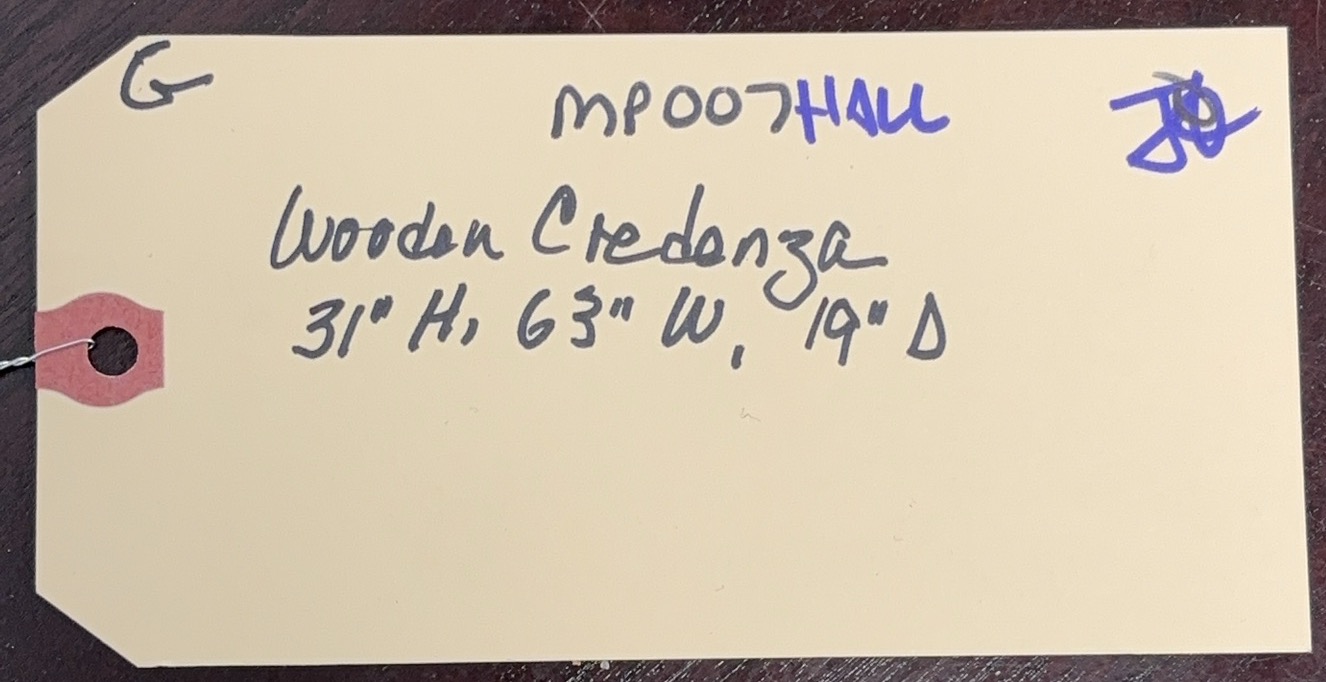 G MP007HALL
Wooden Credenza
31" H, 63" W, 19" D